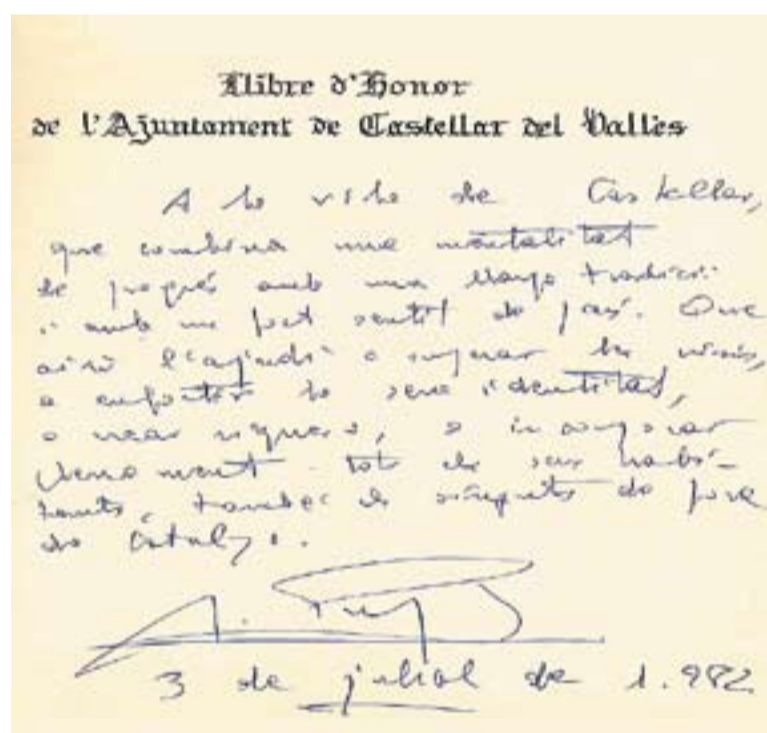 Llibre d'Honor
de l'Ajuntament de Castellar del Vallès
A la vila de Castellar,
que combina una mentalitat
de progrés amb una llarga tradició
i amb un fort sentit de país. Que
això l'ajudi a superar la crisis,
a enfortir la seva identitat,
a crear riquesa, a incorporar
plenament tots els seus habi-
tants, també els vinguts de fora
de Catalunya.
3 de juliol de 1.982